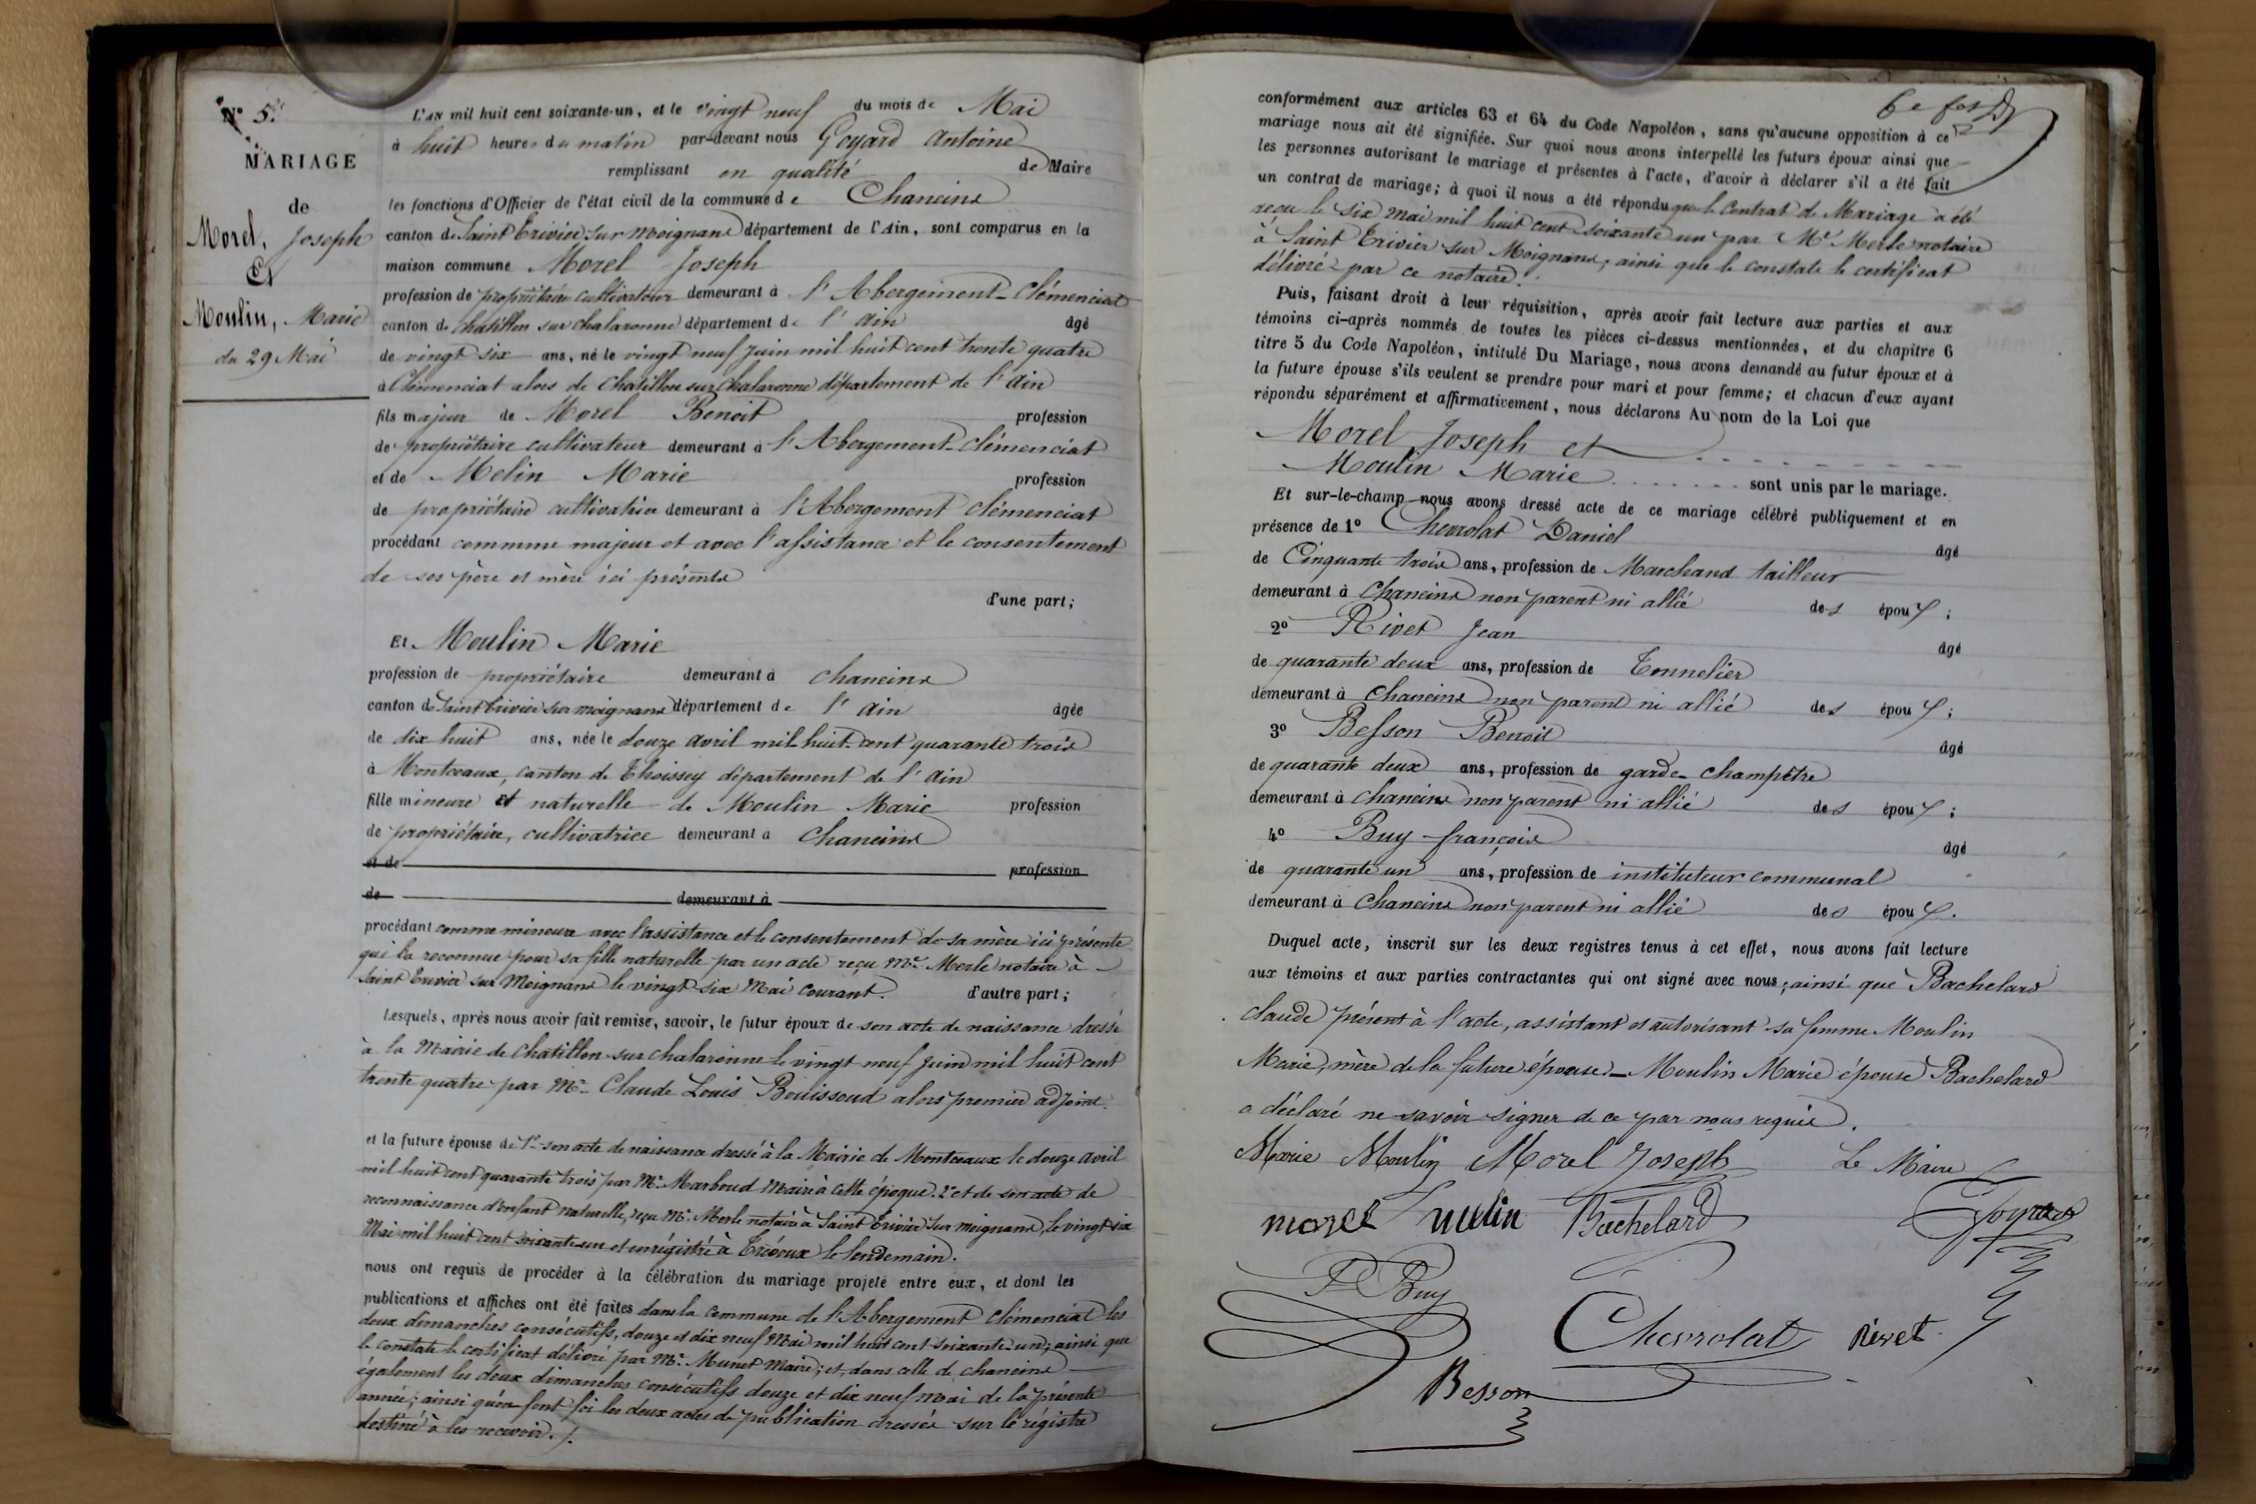 N° 5.
MARIAGE
de
Morel, Joseph
Et
Moulin, Marie
du 29 Mai
L'AN mil huit cent soixante-un, et le vingt neuf du mois de Mai
à huit heures du matin par-devant nous Goyard Antoine
remplissant en qualité de Maire
les fonctions d'Officier de l'état civil de la commune de Chaneins
canton de Saint Trivier sur moignans département de l'Ain, sont comparus en la
maison commune Morel Joseph
profession de propriétaire cultivateur demeurant à l'Abergement-Clémenciat
canton de chatillon sur chalaronne département de l'ain âgé
de vingt six ans, né le vingt neuf juin mil huit cent trente quatre
à Clémenciat alors de Chatillon sur Chalaronne département de l'ain
fils majeur de Morel Benoit profession
de propriétaire cultivateur demeurant à l'Abergement-clémenciat
et de Melin Marie profession
de propriétaire cultivatrice demeurant à l'Abergement clémenciat
procédant commme majeur et avec l'assistance et le consentement
de ses père et mère ici présents
d'une part;
Et Moulin Marie
profession de propriétaire demeurant à chaneins
canton de Saint trivier sur moignans département de l'ain âgée
de dix huit ans, née le douze avril mil huit cent quarante trois
à Montceaux, canton de Thoissey département de l'ain
fille mineure et naturelle de Moulin Marie profession
de propriétaire, cultivatrice demeurant à chaneins
et de profession
de demeurant à
procédant comme mineure avec l'assistance et le consentement de sa mère ici présente
qui l'a reconnue pour sa fille naturelle par un acte reçu Me Merle notaire à
Saint Trivier sur Moignans le vingt six Mai courant. d'autre part;
Lesquels, après nous avoir fait remise, savoir, le futur époux de son acte de naissance dressé
à la Mairie de Chatillon-sur chalaronne le vingt neuf juin mil huit cent
trente quatre par Mr Claude Louis Bouissoud alors premier adjoint.
et la future épouse de 1° son acte de naissance dressé à la Mairie de Montceaux le douze avril
mil huit cent quarante trois par Mr Marboud Maire à cette époque. 2° et de son acte de
reconnaissance d'enfant naturelle, reçu Me Merle notaire à Saint Trivier sur moignans, le vingt six
Mai mil huit cent soixante un et enrégistré à Trévoux le lendemain.
nous ont requis de procéder à la célébration du mariage projeté entre eux, et dont les
publications et affiches ont été faites dans la commune de l'Abergement clémenciat les
deux dimanches consécutifs, douze et dix neuf Mai mil huit cent soixante un, ainsi que
le constate le certificat délivré par Mr Munet Maire; et, dans celle de chaneins
également les deux dimanches consécutifs douze et dix neuf mai de la présente
année; ainsi qu'en font foi les deux actes de publication dressés sur le régistre
destiné à les recevoir./.
6e
conformément aux articles 63 et 64 du Code Napoléon, sans qu'aucune opposition à ce
mariage nous ait été signifiée. Sur quoi nous avons interpellé les futurs époux ainsi que
les personnes autorisant le mariage et présentes à l'acte, d'avoir à déclarer s'il a été fait
un contrat de mariage; à quoi il nous a été répondu que le Contrat de Mariage a été
reçu le six mai mil huit cent soixante un par Me Merle notaire
à Saint Trivier sur Moignans; ainsi que le constate le certificat
délivré par ce notaire.
Puis, faisant droit à leur réquisition, après avoir fait lecture aux parties et aux
témoins ci-après nommés de toutes les pièces ci-dessus mentionnées, et du chapitre 6
titre 5 du Code Napoléon, intitulé Du Mariage, nous avons demandé au futur époux et à
la future épouse s'ils veulent se prendre pour mari et pour femme; et chacun d'eux ayant
répondu séparément et affirmativement, nous déclarons Au nom de la Loi que
Morel Joseph et
Moulin Marie sont unis par le mariage.
Et sur-le-champ nous avons dressé acte de ce mariage célébré publiquement et en
présence de 1° Chevrolat Daniel âgé
de Cinquante trois ans, profession de Marchand tailleur
demeurant à Chaneins non parent ni allié des époux;
2° Rivet Jean âgé
de quarante deux ans, profession de Tonnelier
demeurant à Chaneins non parent ni allié des époux;
3° Besson Benoit âgé
de quarante deux ans, profession de garde-champêtre
demeurant à chaneins non parent ni allié des époux;
4° Buy françois âgé
de quarante un ans, profession de instituteur communal
demeurant à Chaneins non parent ni allié des époux.
Duquel acte, inscrit sur les deux registres tenus à cet effet, nous avons fait lecture
aux témoins et aux parties contractantes qui ont signé avec nous; ainsi que Bachelard
claude présent à l'acte, assistant et autorisant sa femme Moulin
Marie, mère de la future épouse - Moulin Marie épouse Bachelard
a déclaré ne savoir signer de ce par nous requise.
Marie Moulin Morel Joseph Le Maire
morel melin Bachelard Goyard
F Buy
Chevrolat Rivet
Besson